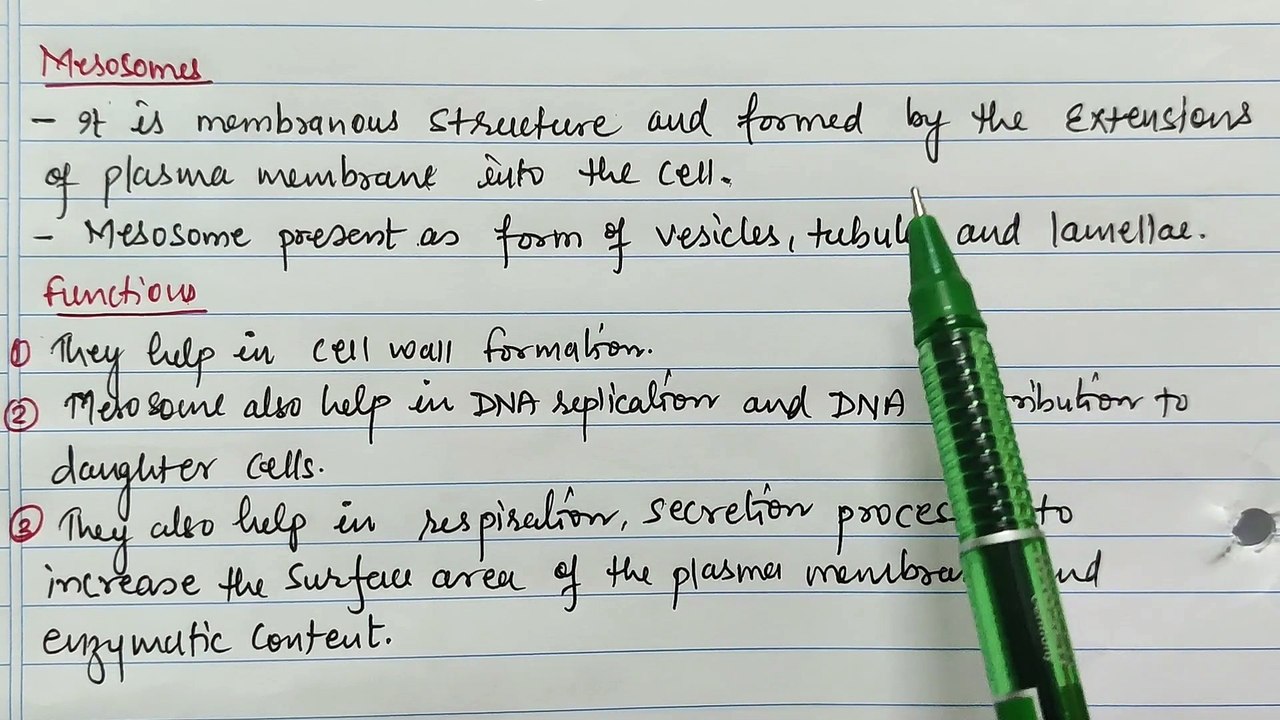 Mesosomes
- It is membranous structure and formed by the extensions
of plasma membrane into the cell.
- Mesosome present as form of vesicles, tubul and lamellae.
functions
① They help in cell wall formation.
② Mesosome also help in DNA replication and DNA ribution to
daughter cells.
③ They also help in respiration, secretion proces to
increase the surface area of the plasma membra nd
enzymatic content.